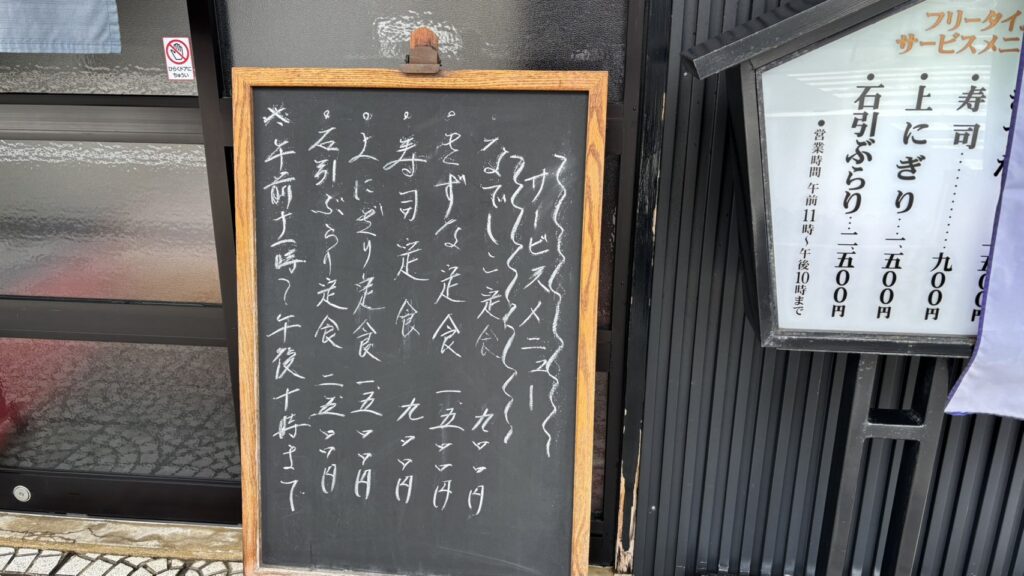 サービスメニュー
・なでしこ定食 九〇〇円
・きずな定食 一、五〇〇円
・寿司定食 九〇〇円
・上にぎり定食 一、五〇〇円
・石引ぶらり定食 二、五〇〇円
※午前十一時〜午後十時まで
フリータイム
サービスメニ
・寿司…………九〇〇円
・上にぎり…一、五〇〇円
・石引ぶらり…二、五〇〇円
●営業時間 午前11時〜午後10時まで
ひらくドアに
ちゅうい